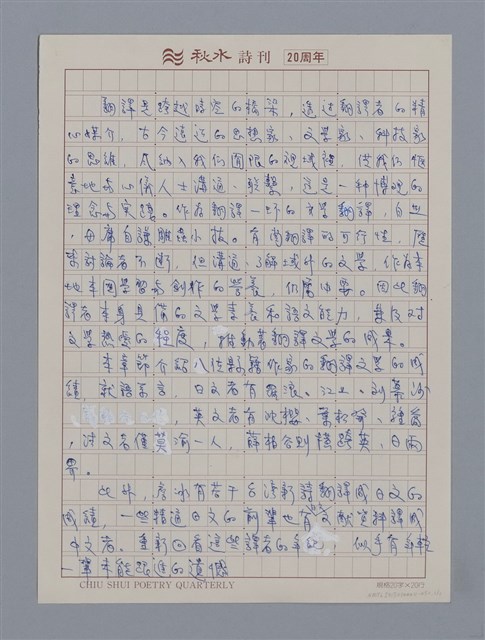 秋水詩刊 20周年
翻譯是跨越時空的橋梁,透過翻譯者的精
心媒介,古今遠近的思想家、文學家、科技家
的思維,式納入我們有限的視域裡,使我們愜
意地與心儀人士溝通、款擊,這是一種博覽的
理念與實踐。作為翻譯一環的文學翻譯,自
,毋庸自謙雕蟲小技。有關翻譯的可行性,歷
來討論者不斷,但溝通、了解域外的文學,作為本
地本國學習與創作的營養,仍屬必要。因此翻
譯者本身具備的文學素養和語文能力,兼及對
文學熱愛的程度,推動著翻譯文學的成果。
本章節介紹八位彰縣作家的翻譯文學的成
績,就語系言,日文者有、江上、劉慕沙
,英文者有、葉、鍾
,法文者僅莫渝一人,薛柏谷則橫跨英、日兩
界。
此外,有若干台灣新詩翻譯成日文的
成績,一些精通日文的前輩也有文獻資料譯成
中文者。重新回看這些譯者的年,似乎有年輕
一輩未能跟進的遺憾
CHIU SHUI POETRY QUARTERLY